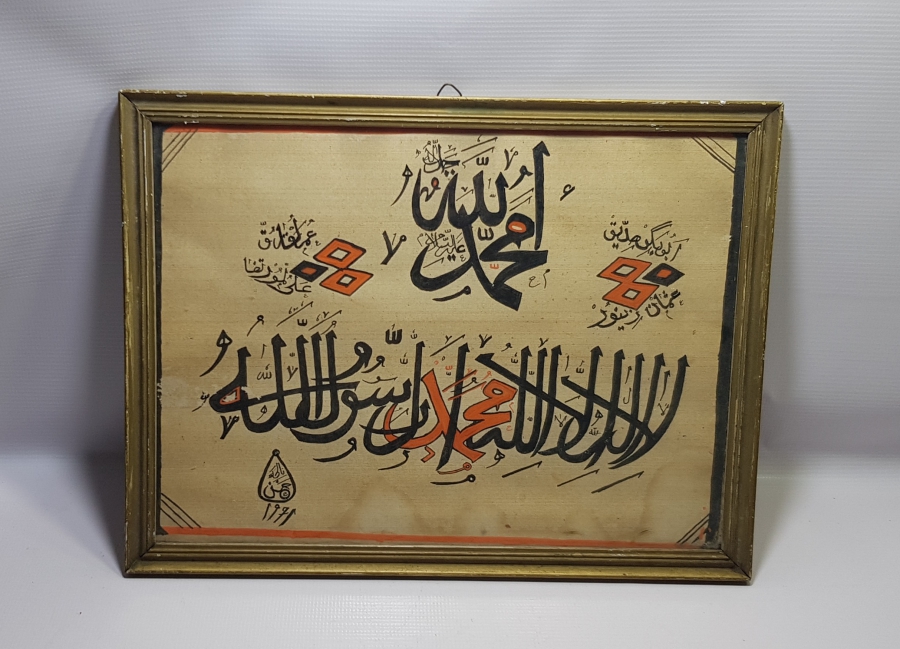 الله جل جلاله
محمد عليه السلام
أبو بكر صديق
عثمان زينور
عمر الفاروق
علي المرتضا
لا إله إلا الله محمد رسول الله
حسن